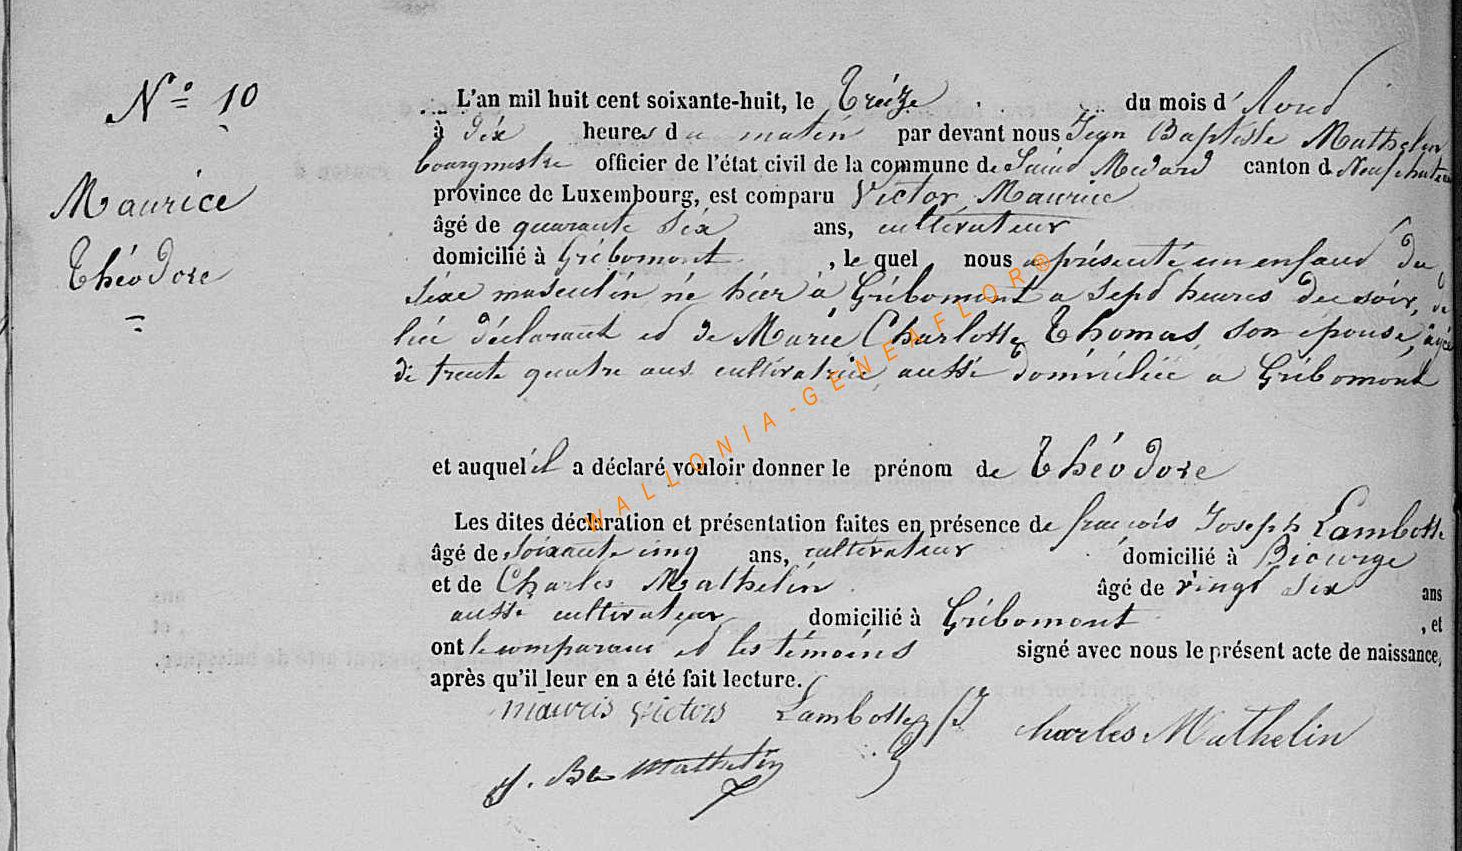 N° 10
Maurice
Théodore
L'an mil huit cent soixante-huit, le Treize du mois d'Aoud
à dix heures du matin par devant nous Jean Baptiste Mathelin
bourgmestre officier de l'état civil de la commune de Saint Medard canton de Neufchateau
province de Luxembourg, est comparu Victor Maurice
âgé de quarante six ans, cultivateur
domicilié à Gribomont, le quel nous a présenté un enfant du
sexe masculin né hier à Gribomont a sept heures du soir, de
lui déclarant et de Marie Charlotte Thomas, son épouse, âgée
de trente quatre ans cultivatrice, aussi domiciliée a Gribomont
et auquel il a déclaré vouloir donner le prénom de Théodore
Les dites déclaration et présentation faites en présence de françois Joseph Lambotte
âgé de soixante cinq ans, cultivateur domicilié à Biourge
et de Charles Mathelin âgé de vingt six ans
aussi cultivateur domicilié à Gribomont, et
ont le comparant et les témoins signé avec nous le présent acte de naissance,
après qu'il leur en a été fait lecture.
mauris victors Lambotte fs Charles Mathelin
J. Bte Mathelin
WALLONIA-GENEAFLOR®